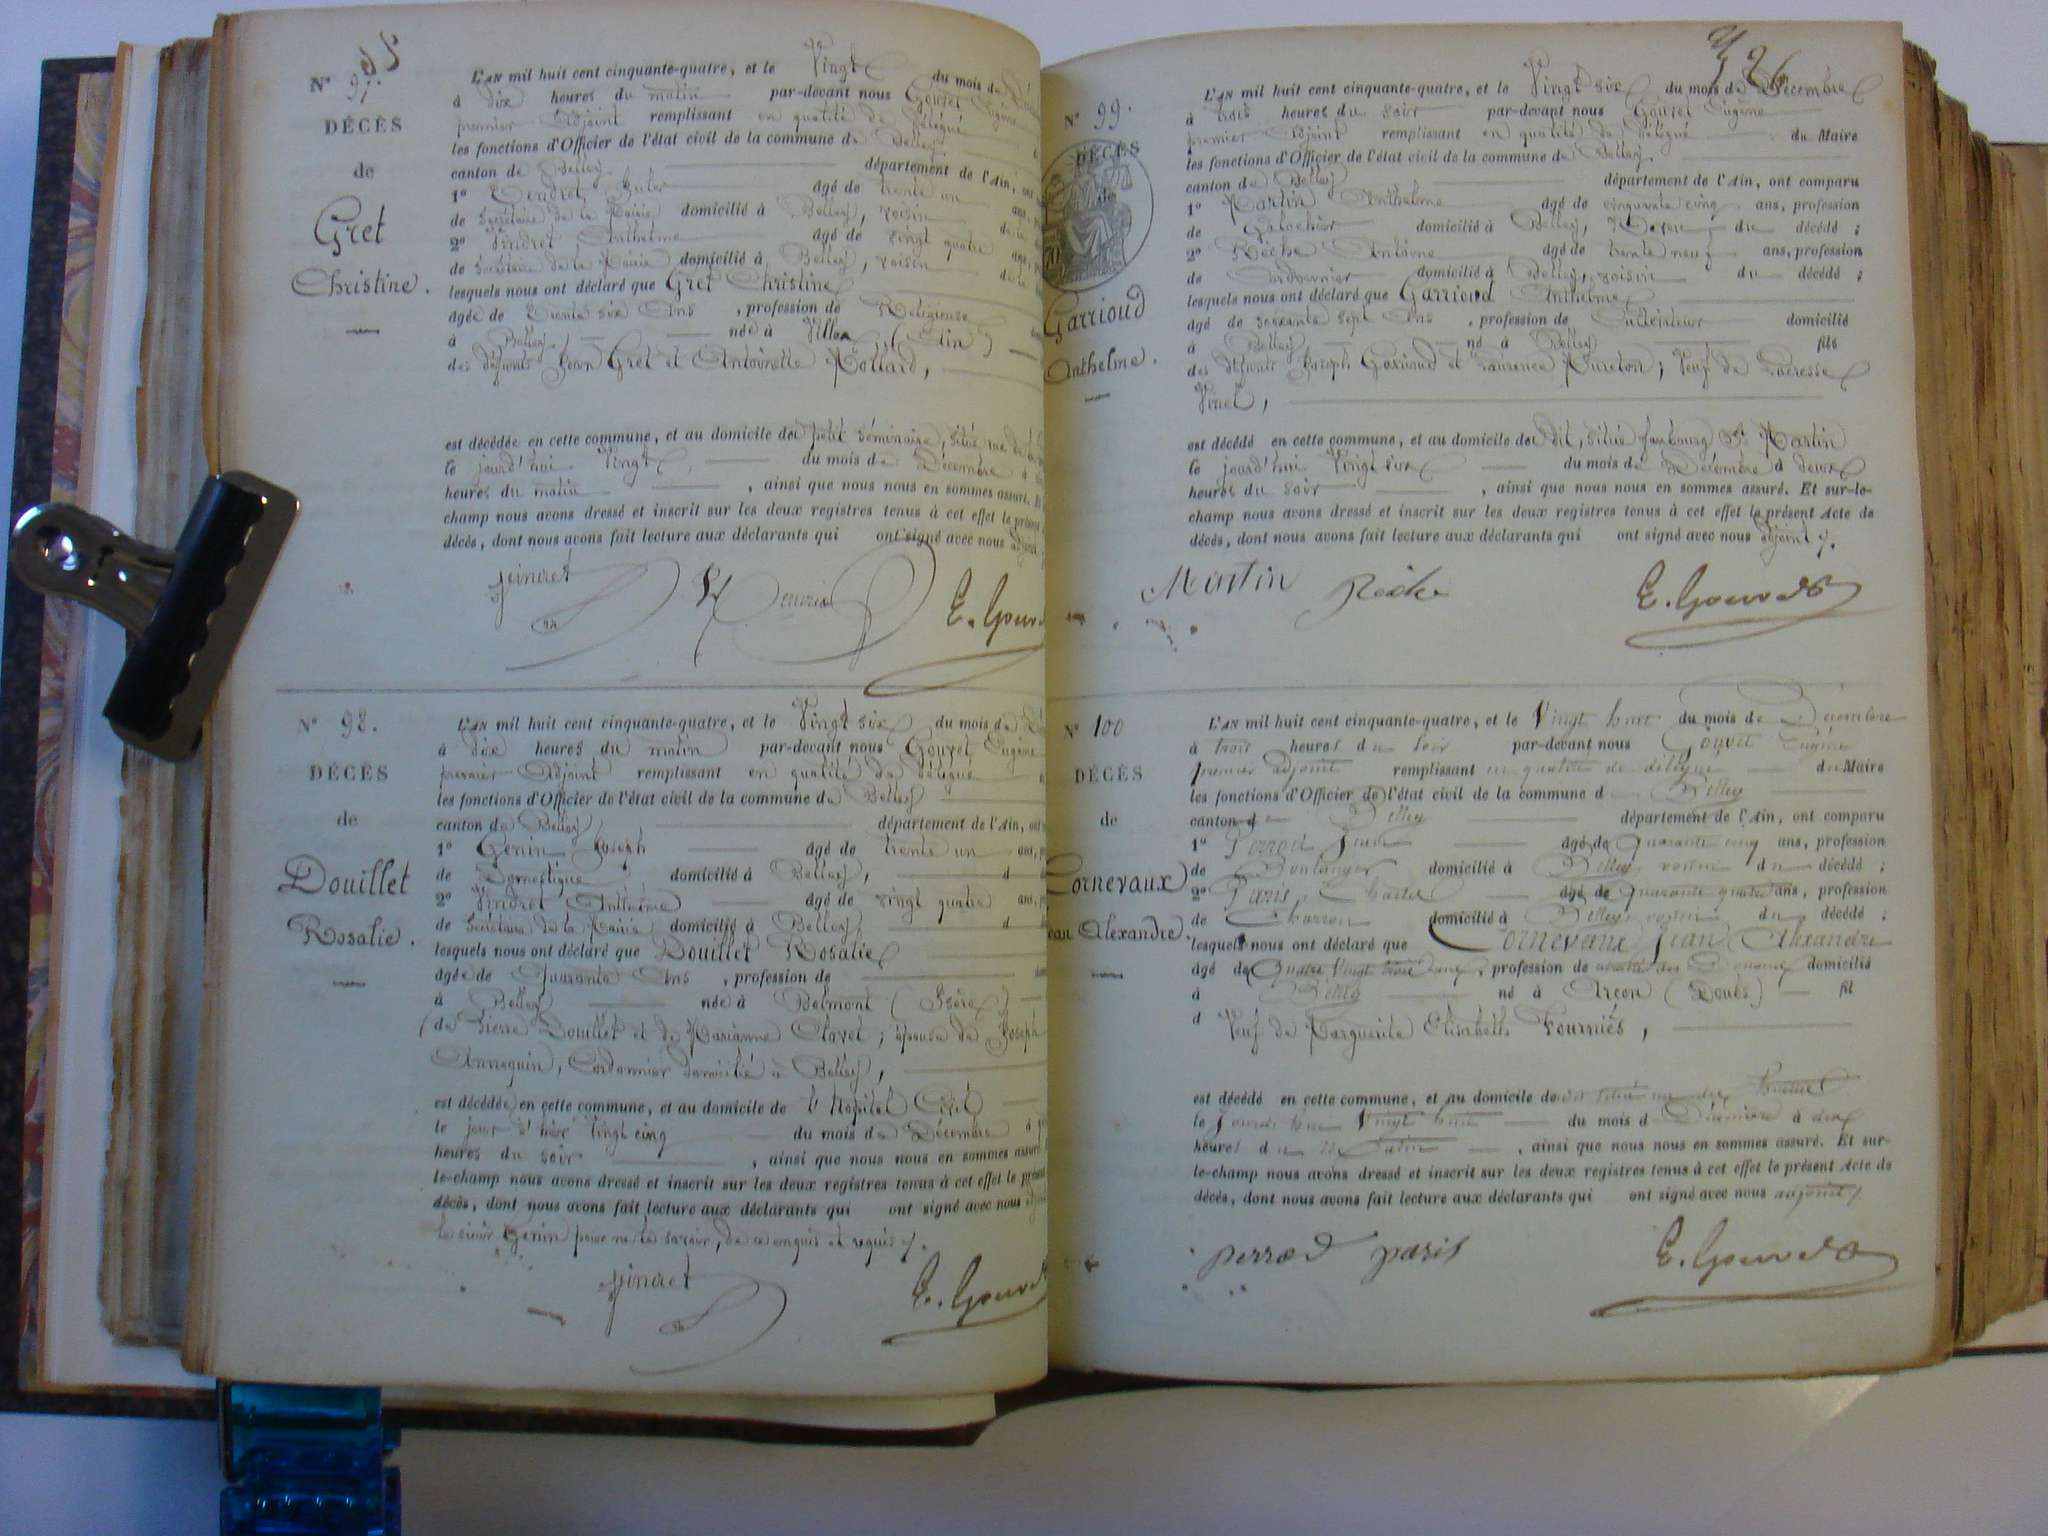 N° 97.
DÉCÈS
de
Gret
Christine.
L'AN mil huit cent cinquante-quatre, et le Vingt du mois de
à dix heures du matin par-devant nous Gouvet Eugène
premier Adjoint remplissant en qualité de délégué
les fonctions d'Officier de l'état civil de la commune de Belley
canton de Belley département de l'Ain, ont
1° âgé de trente un ans,
de Secrétaire de la Mairie domicilié à Belley, voisin de la
2° Pindret Anthelme âgé de vingt quatre ans,
de Secrétaire de la Mairie domicilié à Belley, voisin de la
lesquels nous ont déclaré que Gret Christine
agée de trente six Ans, profession de Religieuse
à Belley née à (Ain)
des défunts Jean Gret et Antoinette Rollard,
est décédée en cette commune, et au domicile du petit séminaire, situé rue de
le jourd'hui Vingt du mois de Décembre à
heures du matin, ainsi que nous nous en sommes assuré. Et
champ nous avons dressé et inscrit sur les deux registres tenus à cet effet le présent
décès, dont nous avons fait lecture aux déclarants qui ont signé avec nous adjoint
pindret E. Gouvet
N° 98.
DÉCÈS
de
Douillet
Rosalie.
L'AN mil huit cent cinquante-quatre, et le Vingt six du mois de
à dix heures du matin par-devant nous Gouvet Eugène
premier Adjoint remplissant en qualité de délégué
les fonctions d'Officier de l'état civil de la commune de Belley
canton de Belley département de l'Ain, ont
1° Genin Joseph âgé de trente un ans,
de Domestique domicilié à Belley, d
2° Pindret Anthelme âgé de vingt quatre ans,
de Secrétaire de la Mairie domicilié à Belley, d
lesquels nous ont déclaré que Douillet Rosalie
agée de Quarante Ans, profession de
à Belley née à Belmont (Isère)
de Pierre Douillet et de Marianne Clavel; épouse de Joseph
Annequin, Cordonnier domicilié à Belley,
est décédée en cette commune, et au domicile de l'Hopital Civil
le jour d'hier Vingt cinq du mois de Décembre à
heures du soir, ainsi que nous nous en sommes assuré
le-champ nous avons dressé et inscrit sur les deux registres tenus à cet effet le présent
décès, dont nous avons fait lecture aux déclarants qui ont signé avec nous
le sieur Genin pour ne le savoir, de ce enquis et requis.
pindret E. Gouvet
N° 99.
DÉCÈS
de
Garrioud
Anthelme.
L'AN mil huit cent cinquante-quatre, et le Vingt six du mois de Décembre
à trois heures du soir par-devant nous Gouvet Eugène
premier Adjoint remplissant en qualité de délégué du Maire
les fonctions d'Officier de l'état civil de la commune de Belley
canton de Belley département de l'Ain, ont comparu
1° Martin Anthelme âgé de cinquante cinq ans, profession
de Galochier domicilié à Belley, Neveu du décédé;
2° Réche Antoine âgé de trente neuf ans, profession
de Cordonnier domicilié à Belley, voisin du décédé;
lesquels nous ont déclaré que Garrioud Anthelme
agé de soixante sept Ans, profession de Cultivateur domicilié
à Belley né à Belley fils
des défunts Joseph Garrioud et Laurence Mureton; Veuf de
Vinet,
est décédé en cette commune, et au domicile du dit, situé faubourg St Martin
le jourd'hui Vingt six du mois de Décembre à deux
heures du soir, ainsi que nous nous en sommes assuré. Et sur-le-
champ nous avons dressé et inscrit sur les deux registres tenus à cet effet le présent Acte de
décès, dont nous avons fait lecture aux déclarants qui ont signé avec nous adjoint
Martin Réche E. Gouvet
N° 100
DÉCÈS
de
Cornevaux
Jean Alexandre.
L'AN mil huit cent cinquante-quatre, et le Vingt huit du mois de Décembre
à trois heures du soir par-devant nous Gouvet Eugène
premier adjoint remplissant en qualité de délégué du Maire
les fonctions d'Officier de l'état civil de la commune d Belley
canton d Belley département de l'Ain, ont comparu
1° Perrod Jean âgé de quarante cinq ans, profession
de Boulanger domicilié à Belley voisin du décédé;
2° Paris, Charles âgé de quarante quatre ans, profession
de Charron domicilié à Belley voisin du décédé;
lesquels nous ont déclaré que Cornevaux Jean Alexandre
âgé de Quatre Vingt trois ans, profession de retraité des Douanes domicilié
à Belley né à Arçon (Doubs) fil
d Veuf de Marguerite Elisabeth Fourniés,
est décédé en cette commune, et au domicile du dit situé rue des
le jourd'hui Vingt huit du mois d Décembre à dix
heures du Matin, ainsi que nous nous en sommes assuré. Et sur-
le-champ nous avons dressé et inscrit sur les deux registres tenus à cet effet le présent Acte de
décès, dont nous avons fait lecture aux déclarants qui ont signé avec nous adjoint
perrod paris E. Gouvet